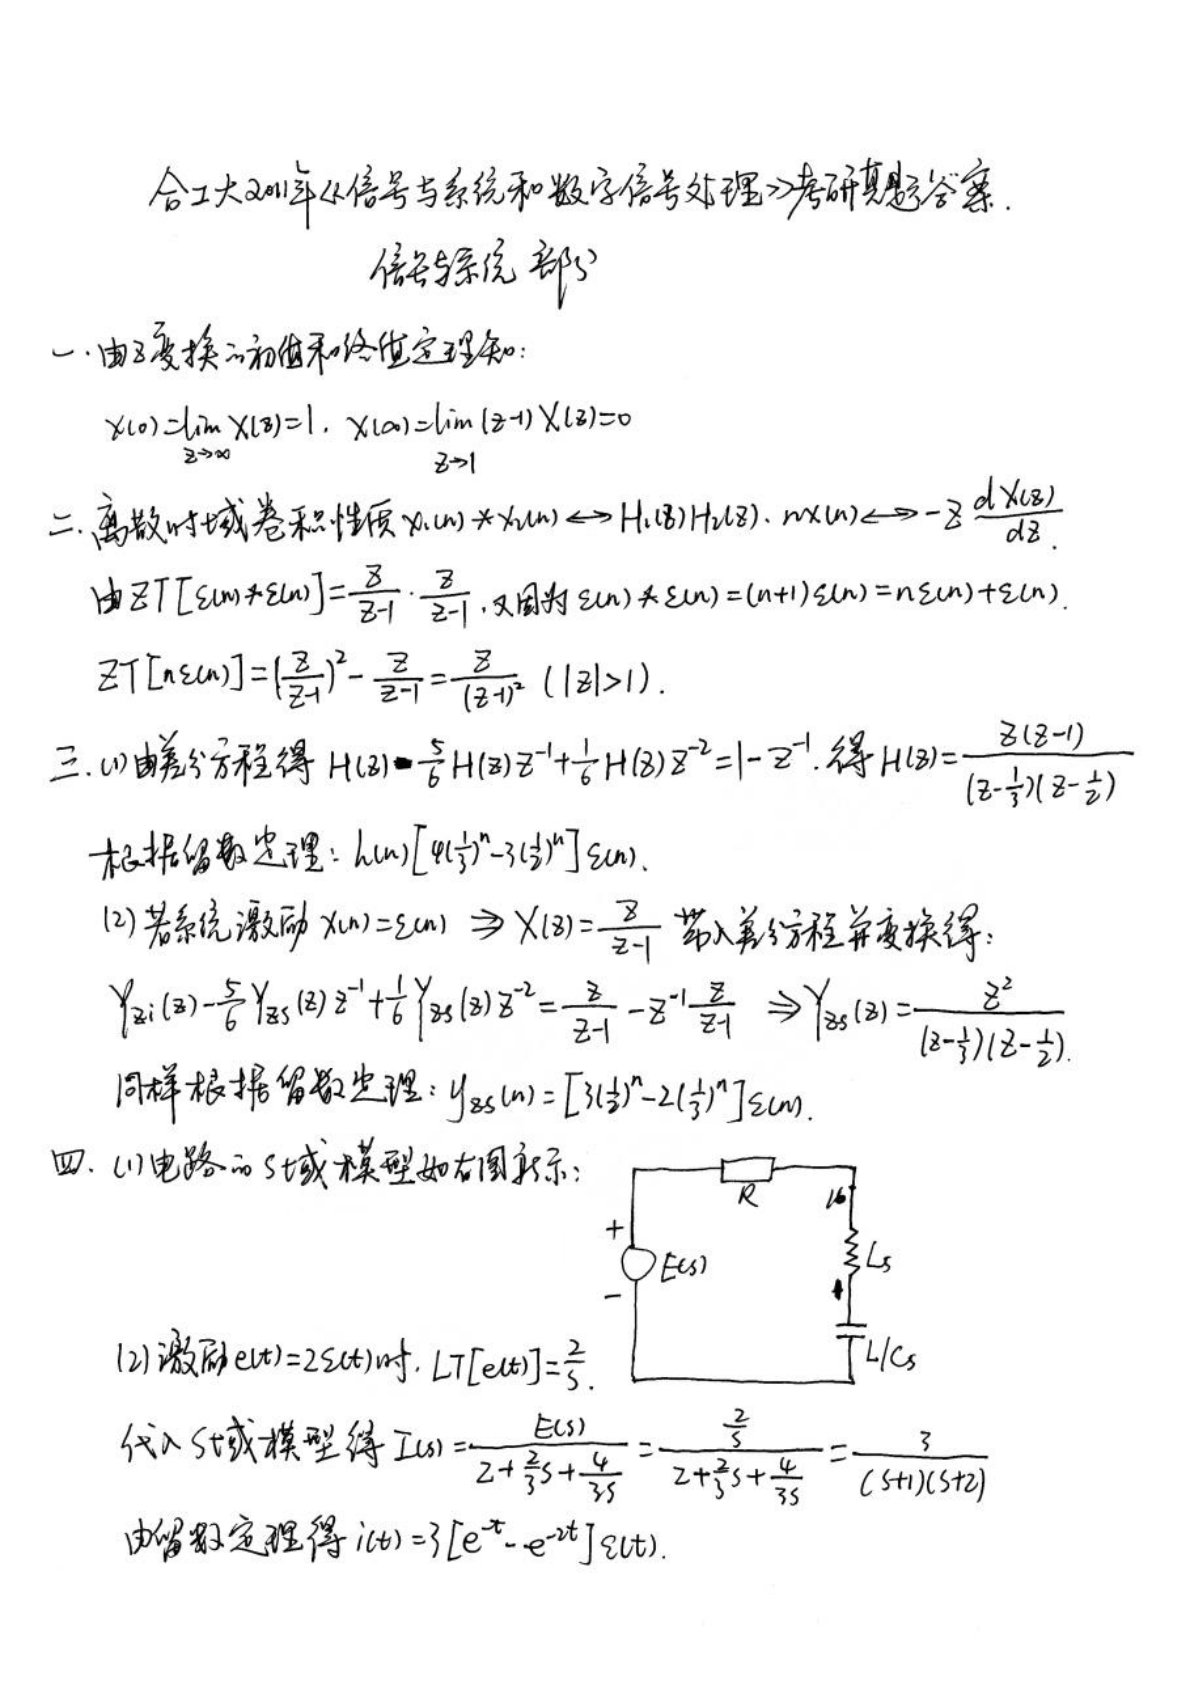 合工大2011年《信号与系统和数字信号处理》考研真题答案.
信号与系统 部分
一.由Z变换的初值和终值定理知:
x(0)=lim_{z→∞} X(z)=1. x(∞)=lim_{z→1} (z-1)X(z)=0
二.离散时域卷积性质 x₁(n)*x₂(n)↔H₁(z)H₂(z). nx(n)↔-z dX(z)/dz.
由ZT[ε(n)*ε(n)]=z/(z-1)·z/(z-1),又因为 ε(n)*ε(n)=(n+1)ε(n)=nε(n)+ε(n).
ZT[nε(n)]=(z/(z-1))²-z/(z-1)=z/(z-1)² (|z|>1).
三.(1)由差分方程得 H(z)-5/6 H(z)z⁻¹+1/6 H(z)z⁻²=1-z⁻¹.得H(z)=z(z-1)/((z-1/3)(z-1/2))
根据留数定理: h(n)[4(1/3)ⁿ-3(1/2)ⁿ]ε(n).
(2)若系统激励 x(n)=ε(n) ⇒ X(z)=z/(z-1) 带入差分方程并变换得:
Yzi(z)-5/6 Yzs(z)z⁻¹+1/6 Yzs(z)z⁻²=z/(z-1)-z⁻¹ z/(z-1) ⇒Yzs(z)=z²/((z-1/3)(z-1/2)).
同样根据留数定理: yzs(n)=[3(1/2)ⁿ-2(1/3)ⁿ]ε(n).
四. (1)电路的S域模型如右图所示:
R
+
E(s)
-
Ls
L/Cs
(2)激励e(t)=2ε(t)时. LT[e(t)]=2/s.
代入S域模型得 I(s)=E(s)/(2+2/3 s+4/3s)=(2/s)/(2+2/3 s+4/3s)=3/((s+1)(s+2))
由留数定理得 i(t)=3[e⁻ᵗ-e⁻²ᵗ]ε(t).